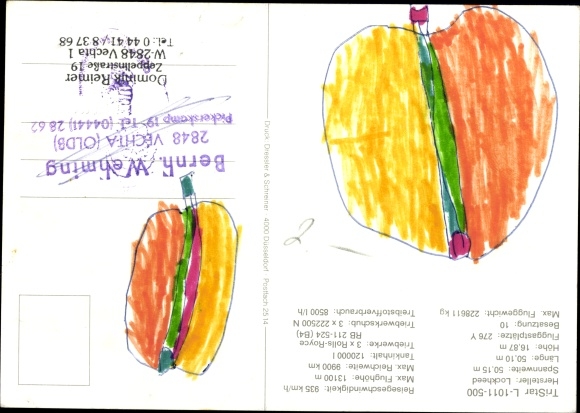 TriStar L-1011-500
Hersteller: Lockheed
Spannweite: 50,15 m
Länge: 50,10 m
Höhe: 16,87 m
Fluggastplätze: 276 Y
Besatzung: 10
Max. Fluggewicht: 228611 kg
Reisegeschwindigkeit: 935 km/h
Max. Flughöhe: 13100 m
Max. Reichweite: 9900 km
Tankinhalt: 120000 l
Triebwerke: 3 x Rolls-Royce
RB 211-524 (B4)
Triebwerkschub: 3 x 222500 N
Treibstoffverbrauch: 8500 l/h
Druck: Dresler & Scherner · 4000 Düsseldorf · Postfach 25 14
Bernh. Wehming
2848 VECHTA (OLDB)
Pickerskamp 19 Tel. (04441) 28 62
Dominik Reimer
Zeppelinstraße 19
W-2848 Vechta 1
Tel.: 0 44 41 / 8 37 68
2.